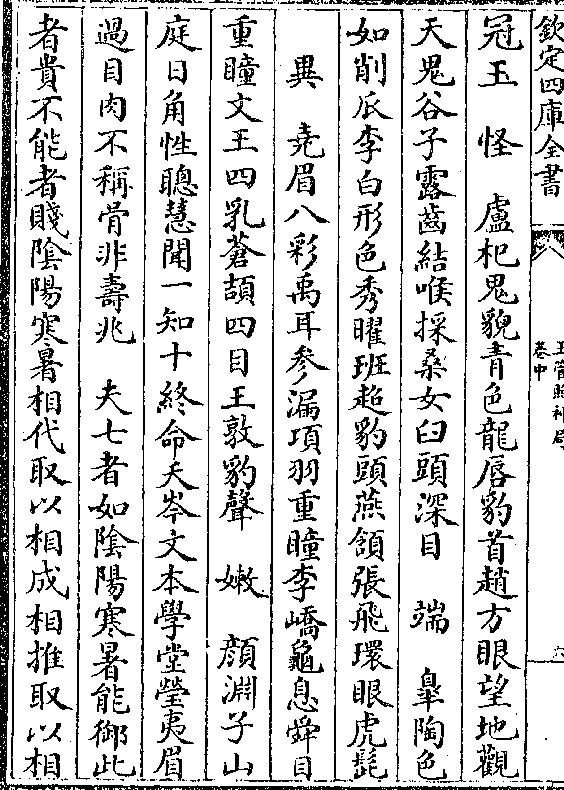 欽定四庫全書
玉管照神局
卷中
六
冠玉　怪　盧杞鬼貌青色龍唇豹首趙方眼望地觀
天鬼谷子露齒結喉採桑女臼頭深目　端　臯陶色
如削瓜李白形色秀曜班超豹頭燕頷張飛環眼虎髭
異　堯眉八彩禹耳參漏項羽重瞳李嶠龜息舜目
重瞳文王四乳蒼頡四目王敦豹聲　嫩　顔淵子山
庭日角性聰慧聞一知十終命夭岑文本學堂瑩夷眉
過目肉不稱骨非壽兆　夫七者如陰陽寒暑能御此
者貴不能者賤陰陽寒暑相代取以相成相推取以相